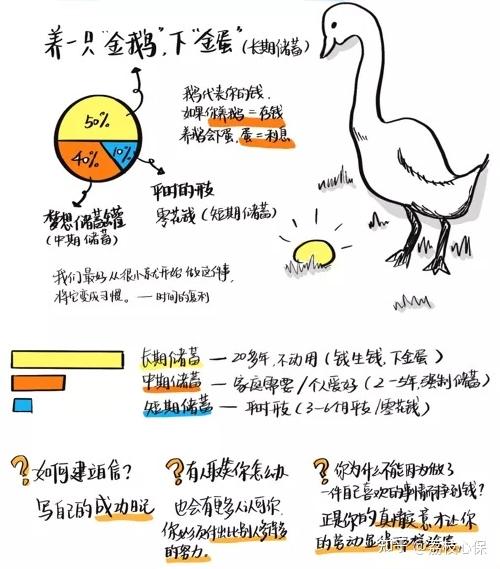 养一只"金鹅",下"金蛋"(长期储蓄)
鹅代表你的钱,
如果你养鹅=存钱
养鹅会下蛋,蛋=利息
50%
40%
10%
平时的开支
零花钱(短期储蓄)
梦想储蓄罐
(中期储蓄)
我们最好从很小就开始做这件事,
将它变成习惯。——时间的复利
长期储蓄—20多年,不动用(钱生钱,下金蛋)
中期储蓄—家庭需要/个人爱好(2-5年,强制储蓄)
短期储蓄—平时开支(3-6个月开支/零花钱)
?如何建立自信?
写自己的成功日记
?有人取笑你怎么办
也会有更多人认可你,
你必须付出比别人多得多
的努力.
?你为什么不能因为做了
一件自己喜欢的事情而挣到钱?
正是你的真情实意才让你
的劳动显得
知乎 @荔枝心保